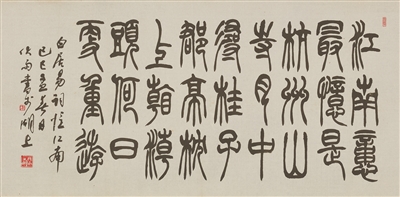 江南憶
最憶是
杭州山
寺月中
尋桂子
郡亭枕
上看潮
頭何日
更重遊
白居易詞憶江南
己巳孟春日
書於湖上